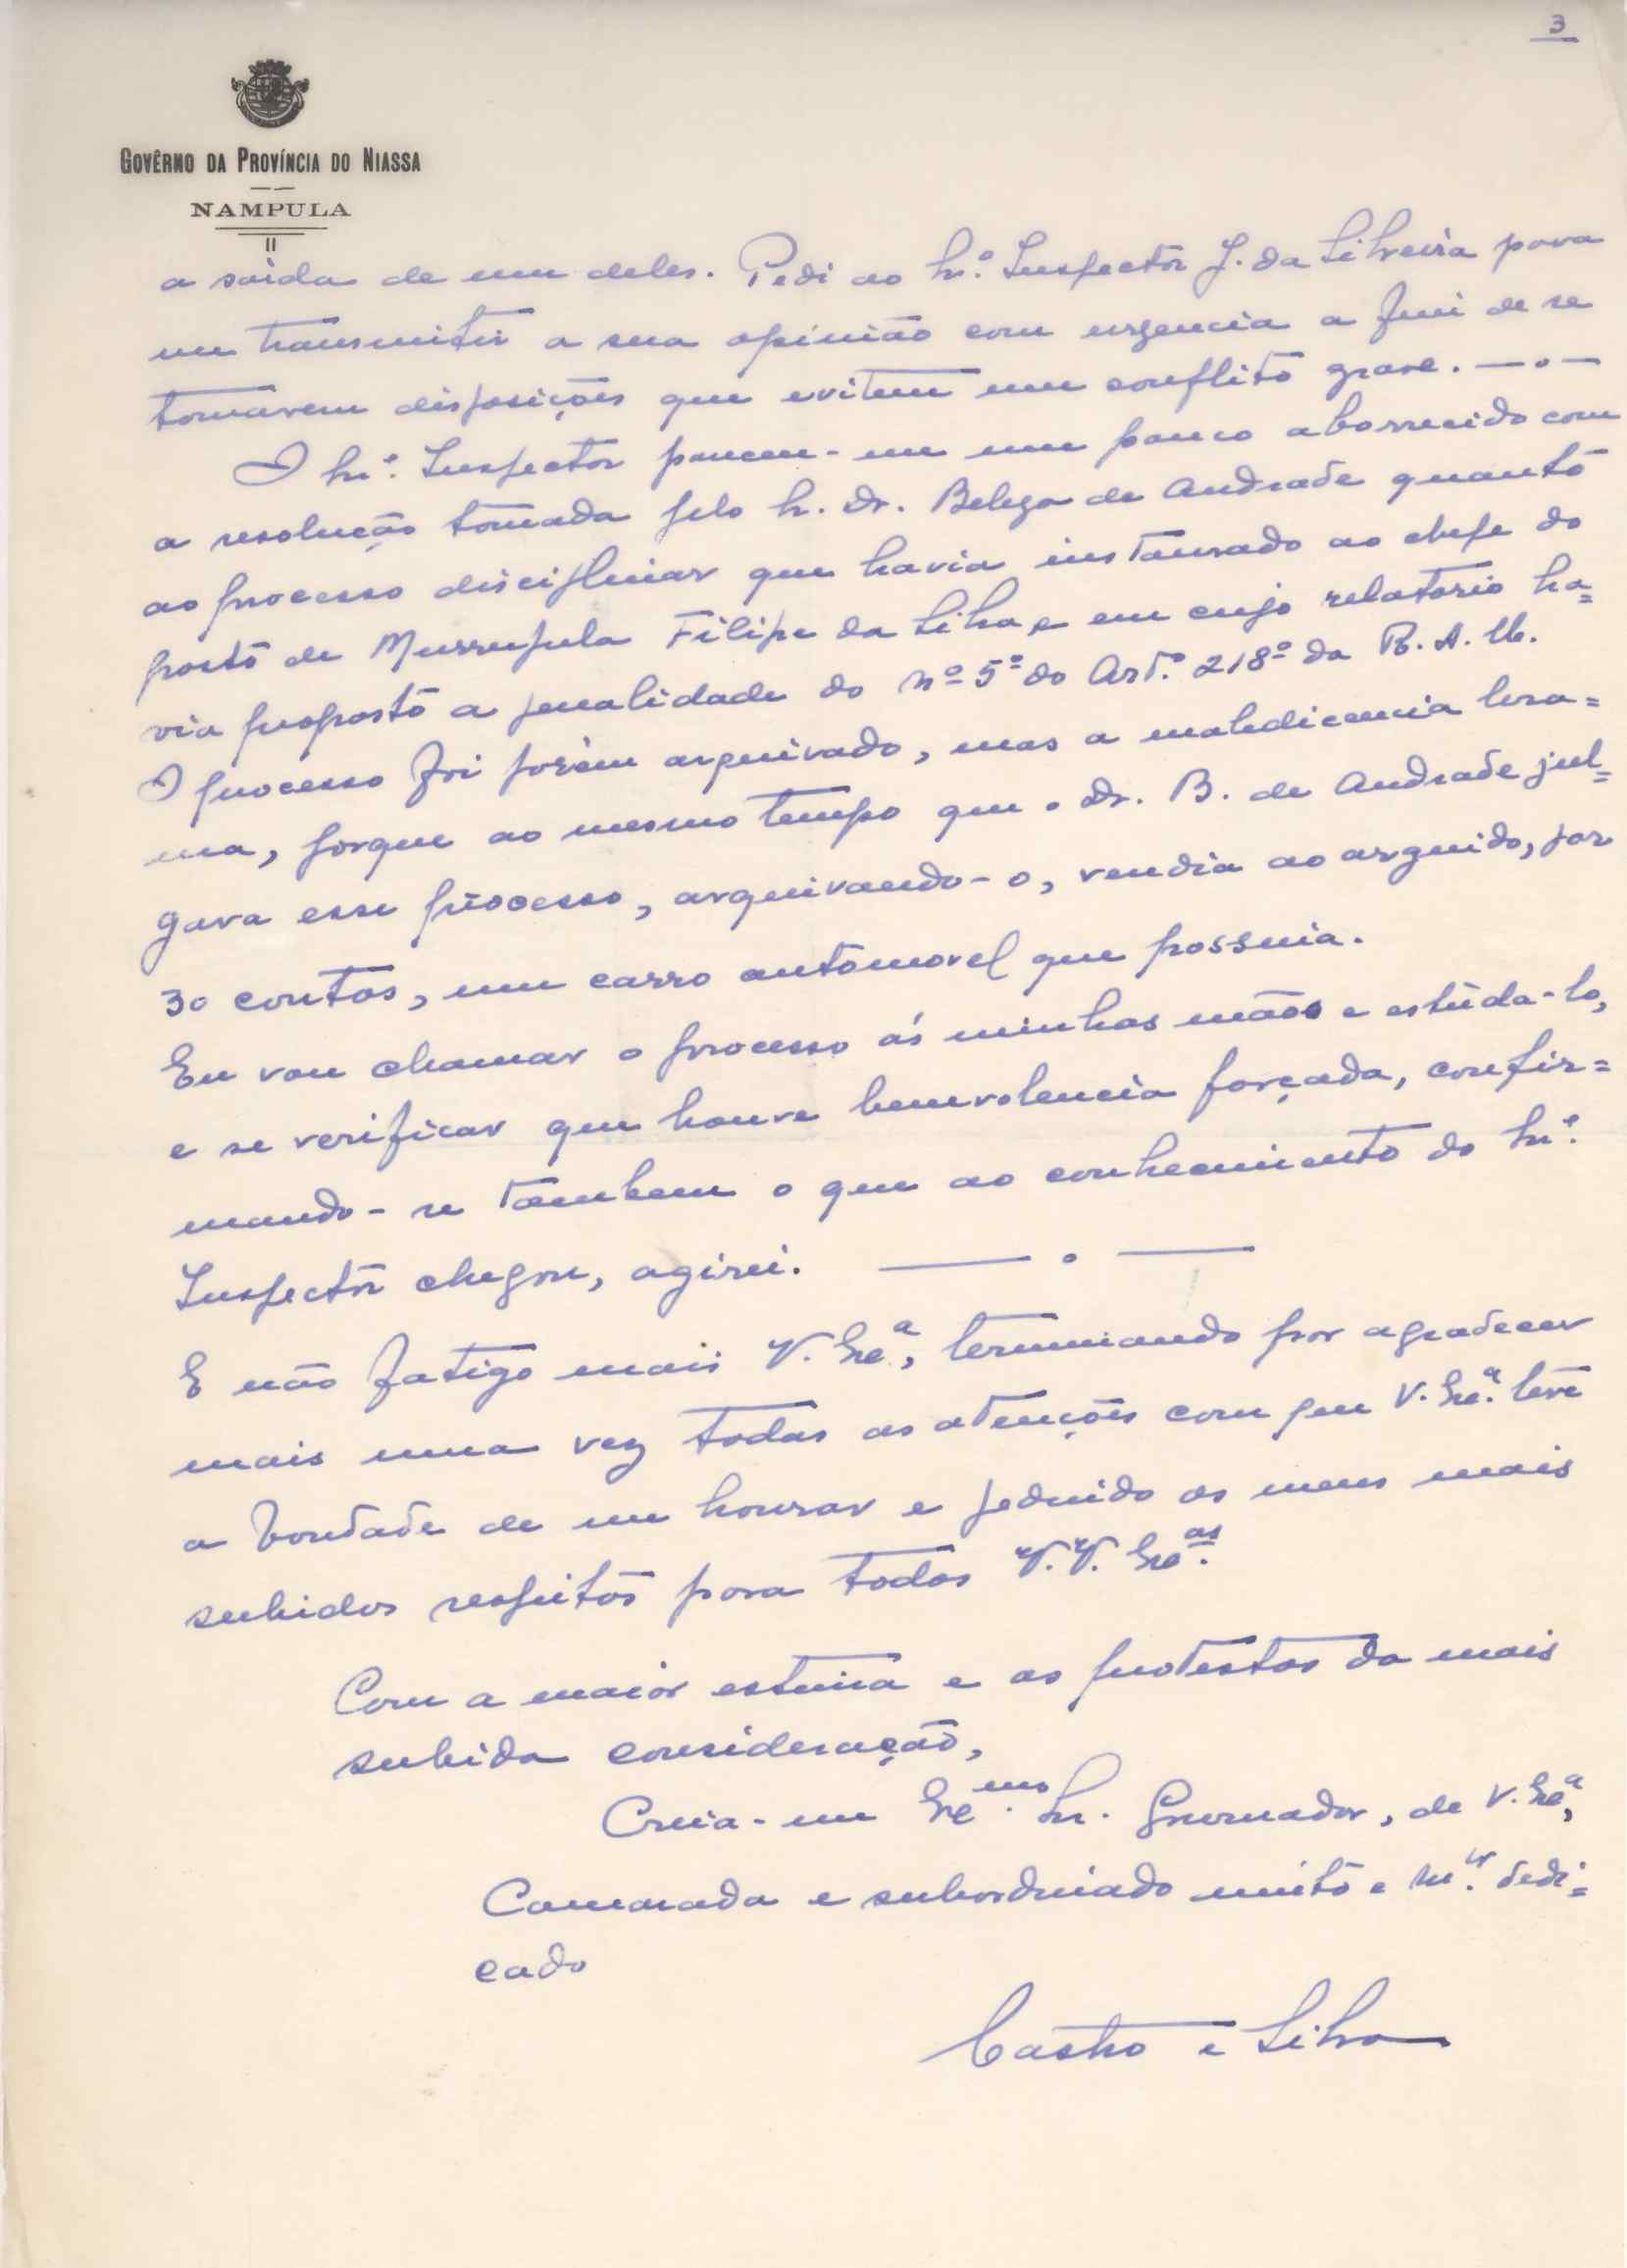 3
GOVÊRNO DA PROVÍNCIA DO NIASSA
NAMPULA
a saida de um deles. Pedi ao Snr.º Inspectôr J. da Silveira para
me transmitir a sua opinião com urgencia a fim de se
tomarem disposições que evitem um conflito grave. —o—
O Snr. Inspector pareceu-me um pouco aborrecido com
a resolução tomada pelo S. Dr. Beleza de Andrade quanto
ao processo disciplinar que havia instaurado ao chefe do
posto de Murrupula Filipe da Silva, e em cujo relatorio ha=
via proposto a penalidade do nº 5º do Artº. 218º da R. A. U.
O processo foi porém arquivado, mas a maledicencia
ma, porque ao mesmo tempo que o Dr. B. de Andrade jul=
gava esse processo, arquivando-o, vendia ao arguido, por
30 contos, um carro automovel que possuia.
Eu vou chamar o processo ás minhas mãos e estuda-lo,
e se verificar que houve benevolencia forçada, confir=
mando-se tambem o que ao conhecimento do Snr.
Inspectôr chegou, agirei. — o —
E não fatigo mais V. Exª, terminando por agradecer
mais uma vez todas as atenções com que V. Exª. teve
a bondade de me honrar e pedindo os meus mais
subidos respeitos para todos V.V. Exas.
Com a maior estima e os protestos da mais
subida consideração,
Creia-me Exmo. Sr. Governador, de V. Exª,
Camarada e subordinado muito e mto. dedi=
cado
Castro e Silva